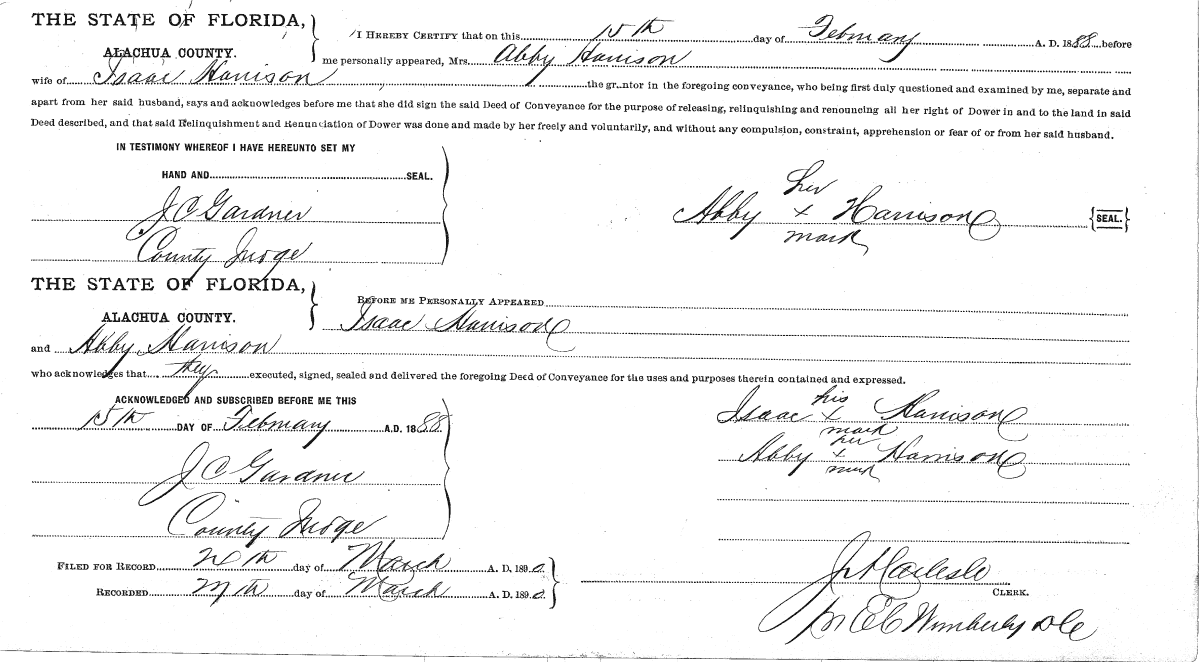 THE STATE OF FLORIDA,
ALACHUA COUNTY.
I HEREBY CERTIFY that on this 15th day of February A. D. 1888 before
me personally appeared, Mrs. Abby Harrison
wife of Isaac Harrison the gr..ntor in the foregoing conveyance, who being first duly questioned and examined by me, separate and
apart from her said husband, says and acknowledges before me that she did sign the said Deed of Conveyance for the purpose of releasing, relinquishing and renouncing all her right of Dower in and to the land in said
Deed described, and that said Relinquishment and Renunciation of Dower was done and made by her freely and voluntarily, and without any compulsion, constraint, apprehension or fear of or from her said husband.
IN TESTIMONY WHEREOF I HAVE HEREUNTO SET MY
HAND AND SEAL.
J C Gardner
County Judge
her
Abby x Harrison {SEAL.}
mark
THE STATE OF FLORIDA,
ALACHUA COUNTY.
BEFORE ME PERSONALLY APPEARED
Isaac Harrison
and Abby Harrison
who acknowledges that they executed, signed, sealed and delivered the foregoing Deed of Conveyance for the uses and purposes therein contained and expressed.
ACKNOWLEDGED AND SUBSCRIBED BEFORE ME THIS
15th DAY OF February A.D. 1888
J C Gardner
County Judge
his
Isaac x Harrison
mark
her
Abby x Harrison
mark
FILED FOR RECORD day of March A. D. 1890
RECORDED day of March A. D. 1890
CLERK.
Wimberly DC